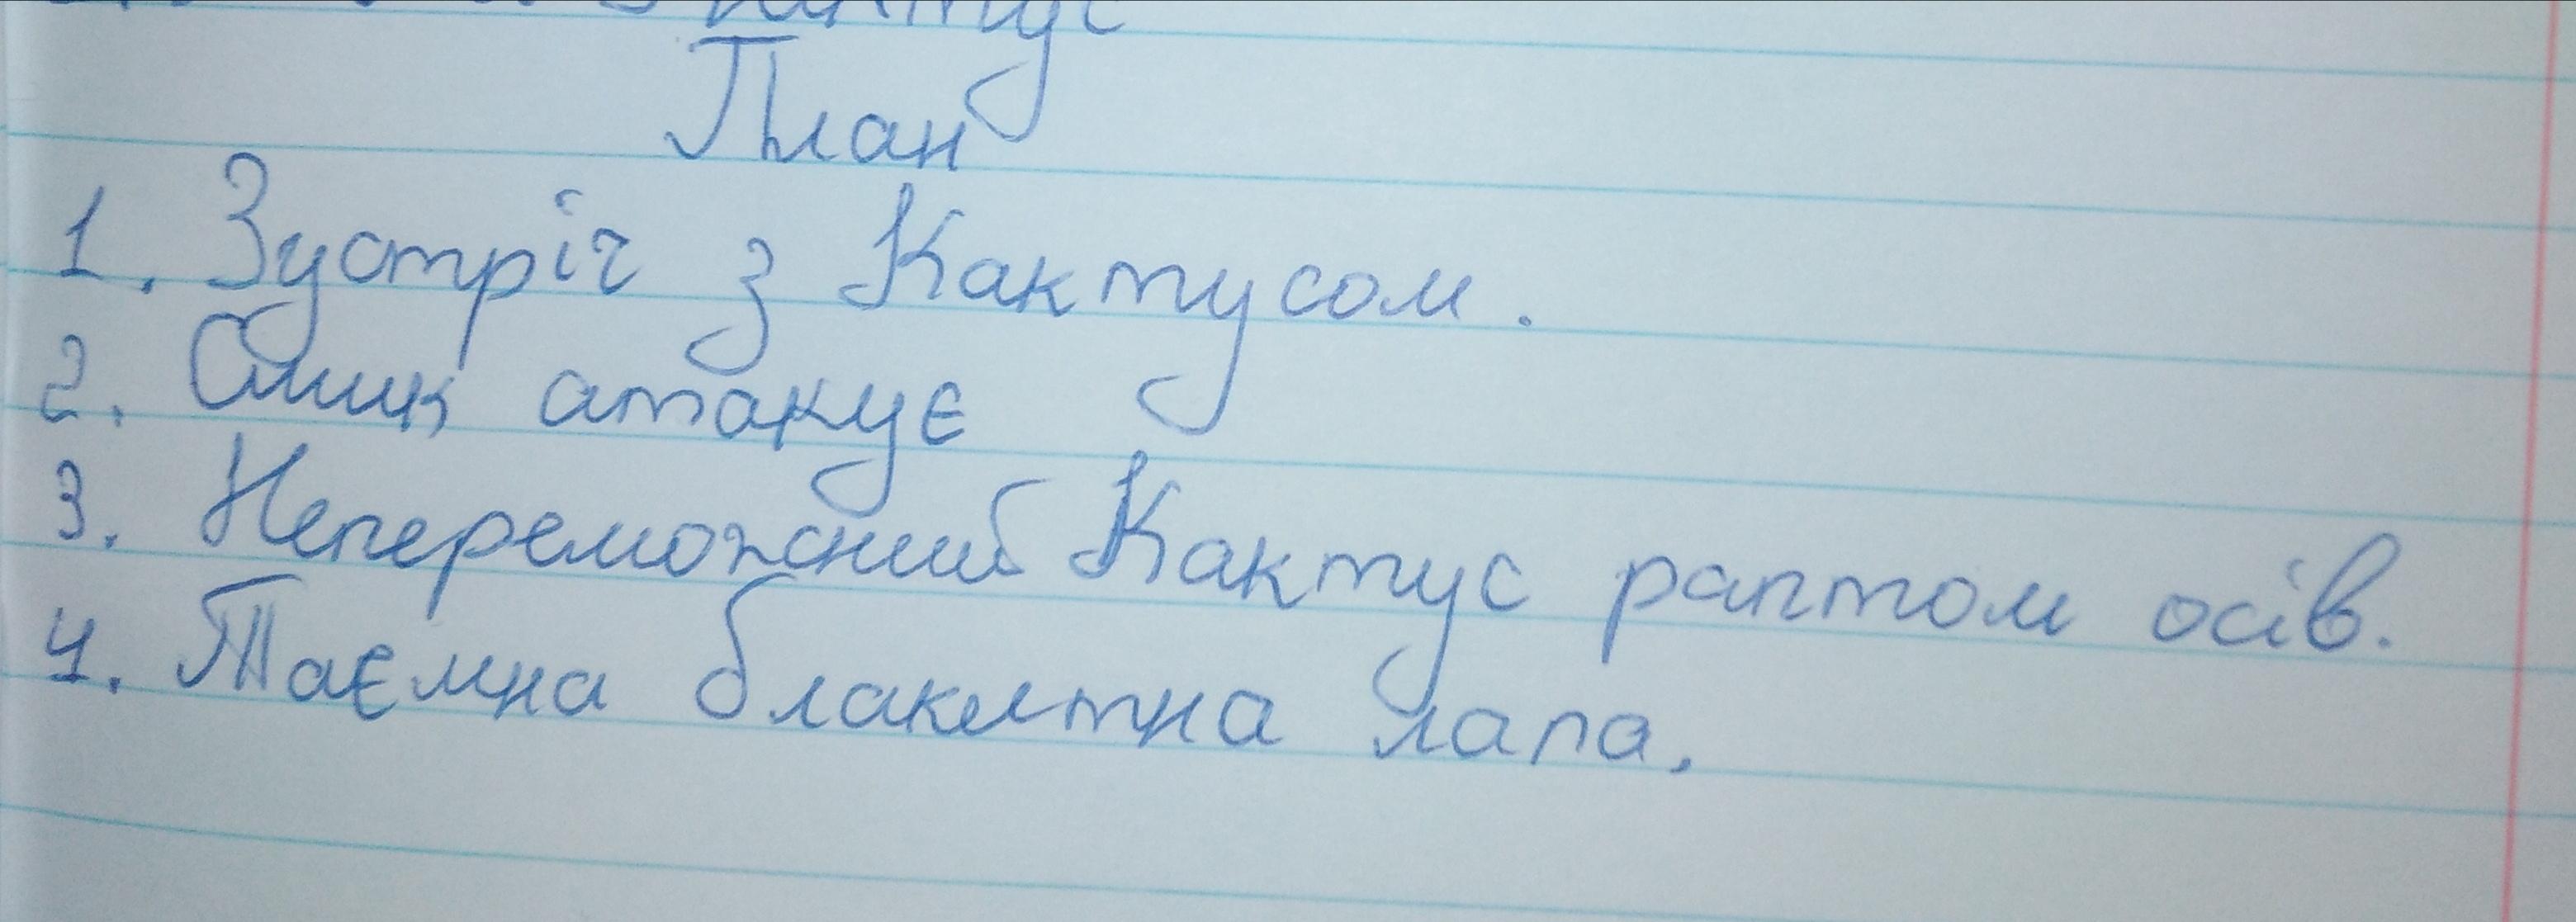 План
1. Зустріч з Кактусом.
2. Смик атакує
3. Непереможний Кактус раптом осів.
4. Таємна блакитна лапа.